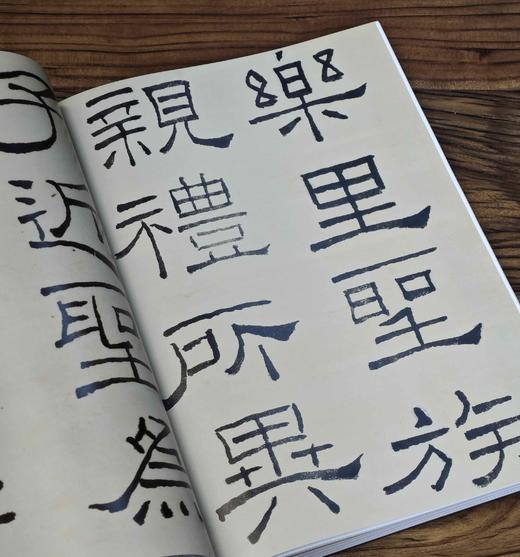 樂里聖族
親禮所異
子近聖為